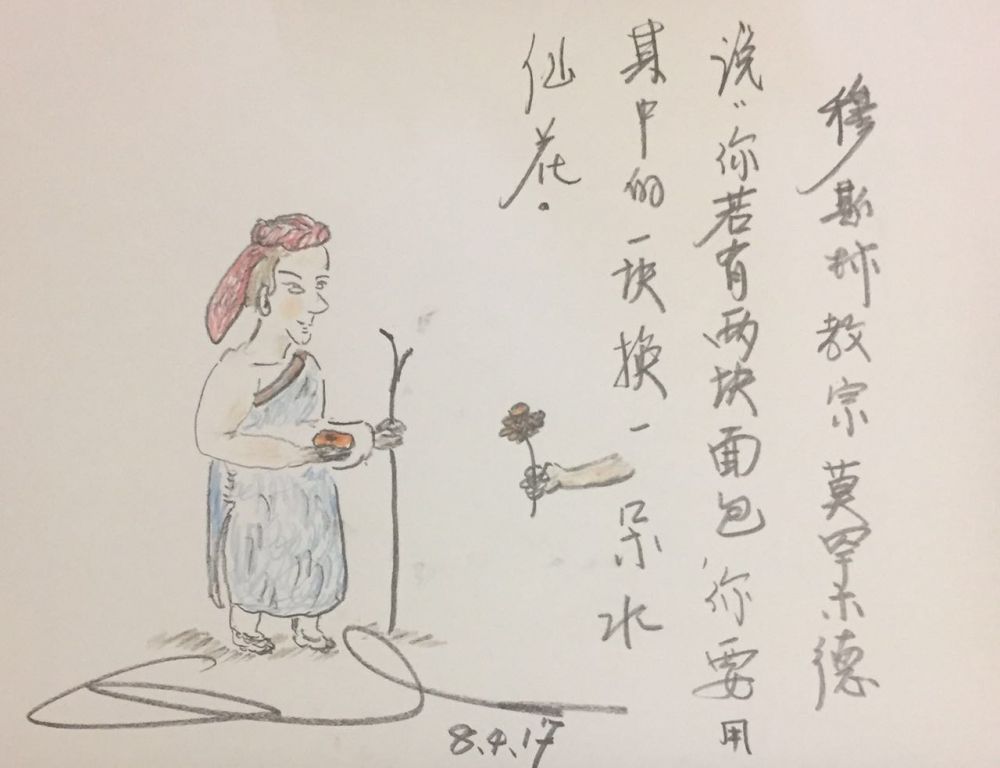 穆斯林教宗莫罕木德
说“你若有两块面包,你要用
其中的一块换一朵水
仙花.
8.4.17